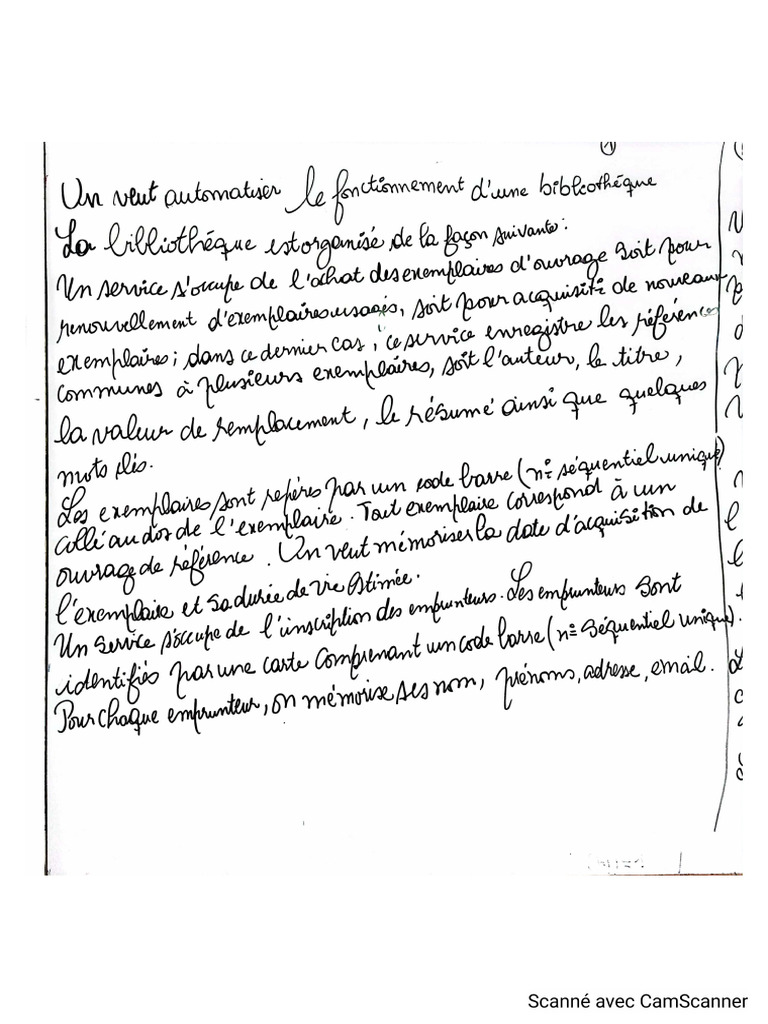 ①
Un veut automatiser le fonctionnement d'une bibliothéque
La bibliothéque est organisé de la façon suivante:
Un service s'occupe de l'achat des exemplaires d'ouvrage soit pour
renouvellement d'exemplaires usagés, soit pour acquisiti de nouveaux
exemplaires; dans ce dernier cas, ce service enregistre les références
communes à plusieurs exemplaires, soit l'auteur, le titre,
la valeur de remplacement, le résumé ainsi que quelques
mots clés.
Les exemplaires sont repérés par un code barre (n° séquentiel unique)
collé au dos de l'exemplaire. Tout exemplaire correspond à un
ouvrage de référence. Un veut mémoriser la date d'acquisition de
l'exemplaire et sa durée de vie estimée.
Un service s'occupe de l'inscription des emprunteurs. Les emprunteurs sont
identifiés par une carte comprenant un code barre (n° séquentiel unique).
Pour chaque emprunteur, on mémorise ses nom, prénoms, adresse, email.
Scanné avec CamScanner